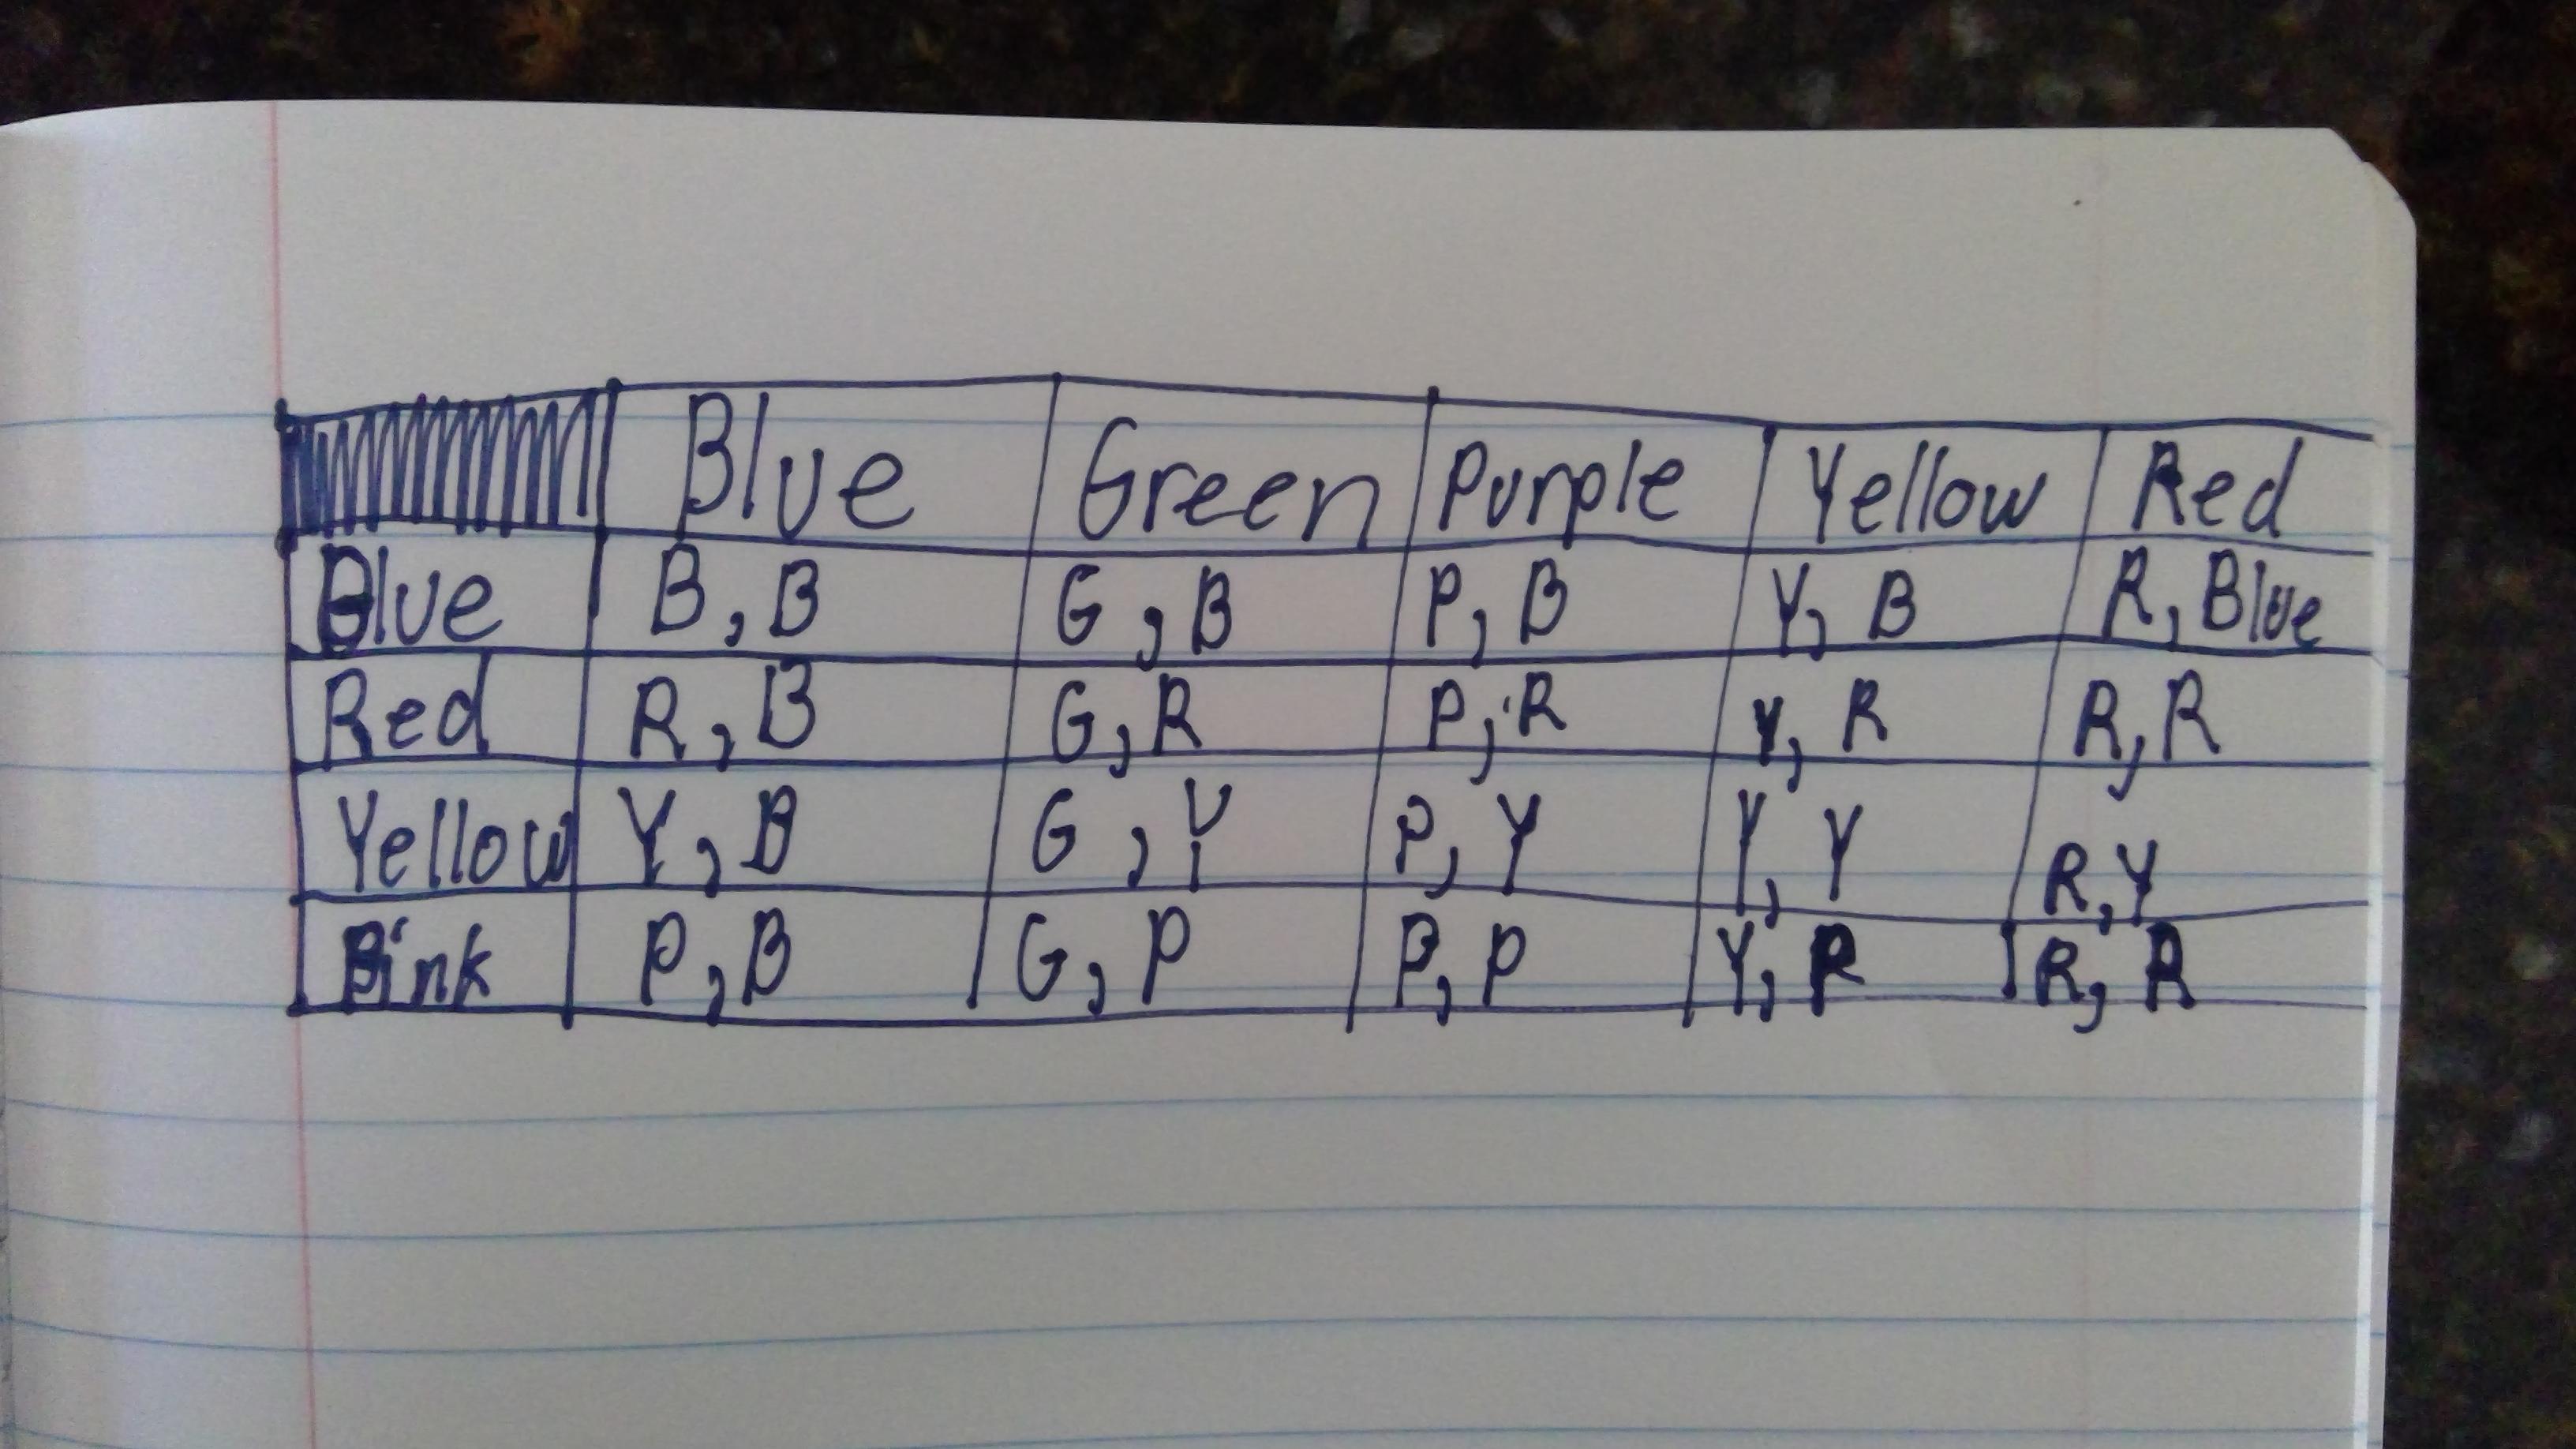 Blue Green Purple Yellow Red
Blue B, B G, B P, B Y, B R, Blue
Red R, B G, R P, R Y, R R, R
Yellow Y, B G, Y P, Y Y, Y R, Y
Pink P, B G, P P, P Y, R R, R